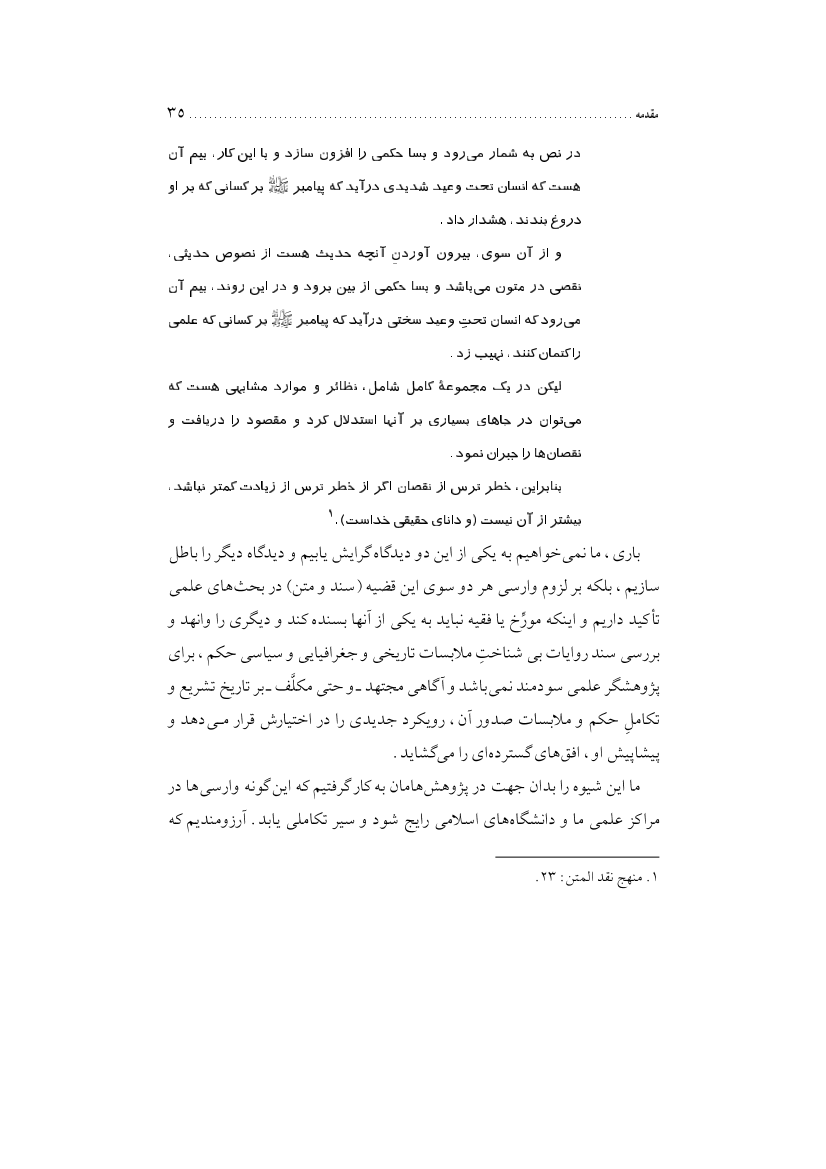 مقدمه ........................................................................................ ۳۵
در نص به شمار می‌رود و بسا حکمی را افزون سازد و با این کار، بیم آن
هست که انسان تحت وعید شدیدی درآید که پیامبر ﷺ بر کسانی که بر او
دروغ بندند، هشدار داد.
و از آن سوی، بیرون آوردنِ آنچه حدیث هست از نصوص حدیثی،
نقصی در متون می‌باشد و بسا حکمی از بین برود و در این روند، بیم آن
می‌رود که انسان تحتِ وعید سختی درآید که پیامبر ﷺ بر کسانی که علمی
را کتمان کنند، نهیب زد.
لیکن در یک مجموعهٔ کامل شامل، نظائر و موارد مشابهی هست که
می‌توان در جاهای بسیاری بر آنها استدلال کرد و مقصود را دریافت و
نقصان‌ها را جبران نمود.
بنابراین، خطر ترس از نقصان اگر از خطر ترس از زیادت کمتر نباشد،
بیشتر از آن نیست (و دانای حقیقی خداست).۱
باری، ما نمی‌خواهیم به یکی از این دو دیدگاه گرایش یابیم و دیدگاه دیگر را باطل
سازیم، بلکه بر لزوم وارسی هر دو سوی این قضیه (سند و متن) در بحث‌های علمی
تأکید داریم و اینکه مورِّخ یا فقیه نباید به یکی از آنها بسنده کند و دیگری را وانهد و
بررسی سند روایات بی شناختِ ملابسات تاریخی و جغرافیایی و سیاسی حکم، برای
پژوهشگر علمی سودمند نمی‌باشد و آگاهی مجتهد ـ و حتی مکلَّف ـ بر تاریخ تشریع و
تکاملِ حکم و ملابسات صدور آن، رویکرد جدیدی را در اختیارش قرار می‌دهد و
پیشاپیش او، افق‌های گسترده‌ای را می‌گشاید.
ما این شیوه را بدان جهت در پژوهش‌هامان به کار گرفتیم که این‌گونه وارسی‌ها در
مراکز علمی ما و دانشگاه‌های اسلامی رایج شود و سیر تکاملی یابد. آرزومندیم که
۱. منهج نقد المتن: ۲۳.